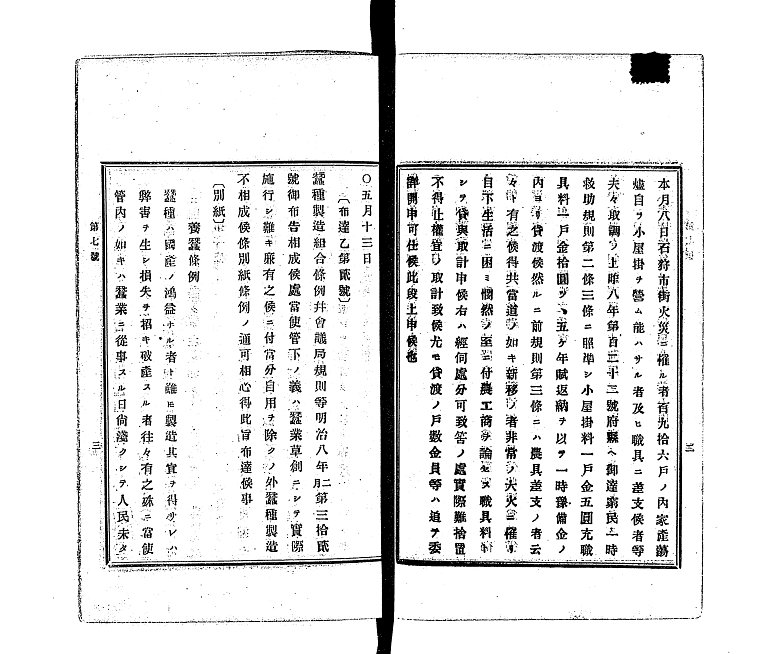 本月八日石狩市街火災ニ罹ル者百九拾六戸ノ內家產蕩
燼自ヲ小屋掛ヲ營ム能ハサル者及ヒ職具ニ差支候者等
夫々取調ノ上唯八年第百三十三號府縣ヘ御達窮民一時
救助規則第二條三條ニ照準シ小屋掛料一戸金五圓充職
具料一戸金拾圓ヲ五ヶ年賦返納ヲ以テ一時豫備金ノ
內ヨリ貸渡候然ルニ前規則第三條ニハ農具差支ノ者云
々ト有之候得共當道ノ如キ新移ノ者非常ノ大火ニ罹リ
目下生活ニ困ミ憫然ノ至ニ付農工商ヲ論セス職具料
シヲ貸與取計申候右ハ經伺處分可致筈ノ處實際難捨置
不得止權宜ヲ取計致候尤モ貸渡ノ戸數金員等ハ追テ委
詳開申可仕候此段上申候也
三
〇五月十三日
〔布達乙第貳號〕
蠶種製造組合條例幷會議局規則等明治八年二月第三拾貳
號御布告相成候處當使管下ノ義ハ蠶業草創ニシテ實際
施行シ難キ廉有之候ニ付當分自用ヲ除クノ外蠶種製造
不相成候條別紙條例ノ通可相心得此旨布達候事
〔別紙〕
養蠶條例
蠶種ハ國產ノ鴻益ナル者ト雖モ製造其實ヲ得サレハ
弊害ヲ生シ損失ヲ招キ破產スル者往々有之殊ニ當使
管內ノ如キハ蠶業ニ從事スル日尙淺クシテ人民未タ
第七號
三